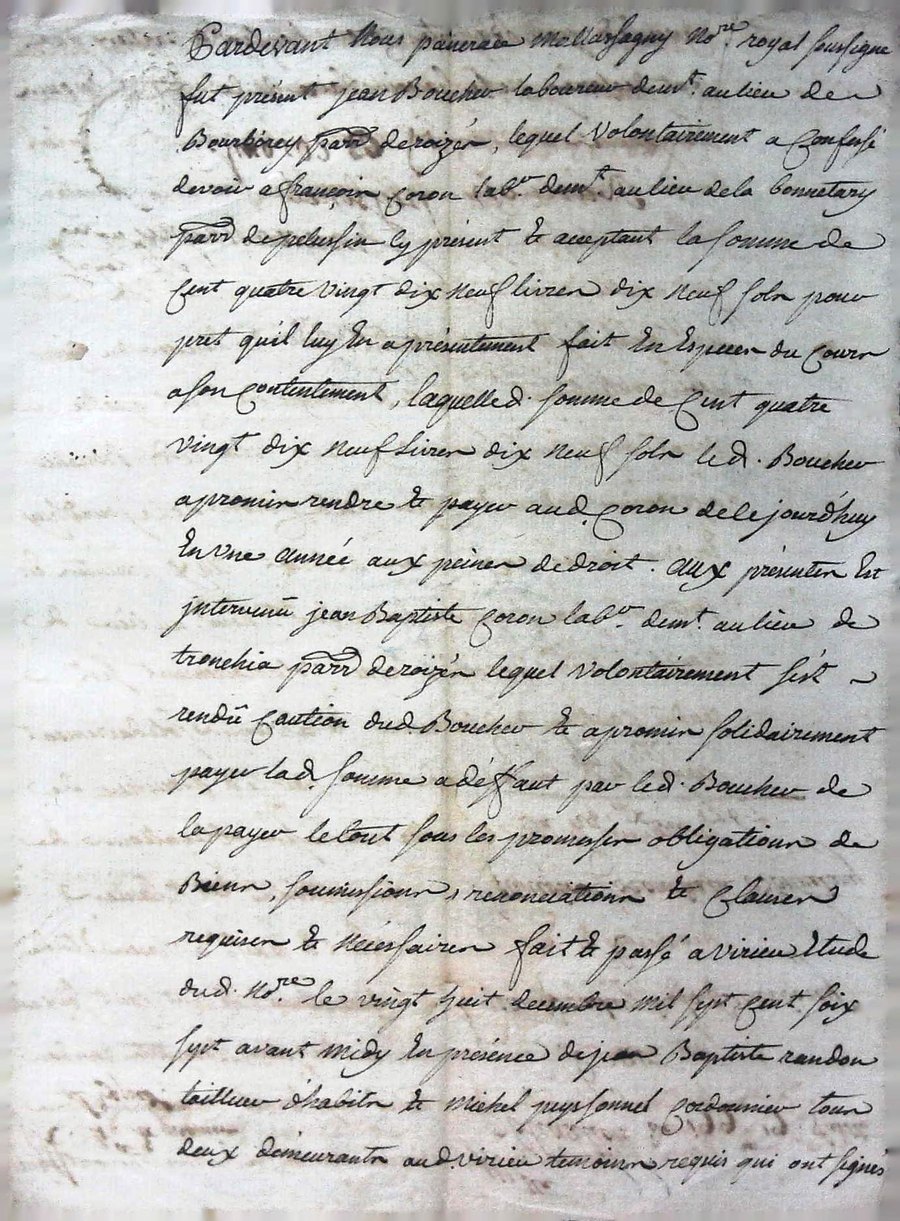 Pardevant Nous panerace Mollassagny No.re royal soussigné
fut présent jean Boucher laboureur demt. au lieu de
Bourbirey parr deroizey, lequel Volontairement a Confessé
devoir a françois Coron labr. demt. au lieu dela bonnetary
parr de pelussin Cy présent Et acceptant la somme de
Cent quatre vingt dix neuf livres dix neuf sols pour
pret qu'il luy En a présentement fait En Especes du Cours
a son Contentement, laquelle d. somme de Cent quatre
vingt dix neuf Livres dix neuf sols le d. Boucher
a promis rendre Et payer au d. Coron de ce jourd'huy
En vne année aux peines de droit. aux présentes Est
jntervenû jean Baptiste Coron labr. demt. au lieu de
tronchia parr deroizey lequel Volontairement s'est
rendû Caution dud. Boucher Et a promis solidairement
payer la d. somme a déffaut par le d. Boucher de
la payer le tout sous les promesses obligations de
Biens, soumissions, renonciations Et Clauses
requises Et nécessaires fait Et passé a virieu Etude
dud. No.re le vingt huit decembre mil sept Cent soix
sept avant midy En présence de jean Baptiste randon
tailleur d'habits Et michel peyssonnel Cordonnier tous
deux demeurants aud virieu temoins requis qui ont signés